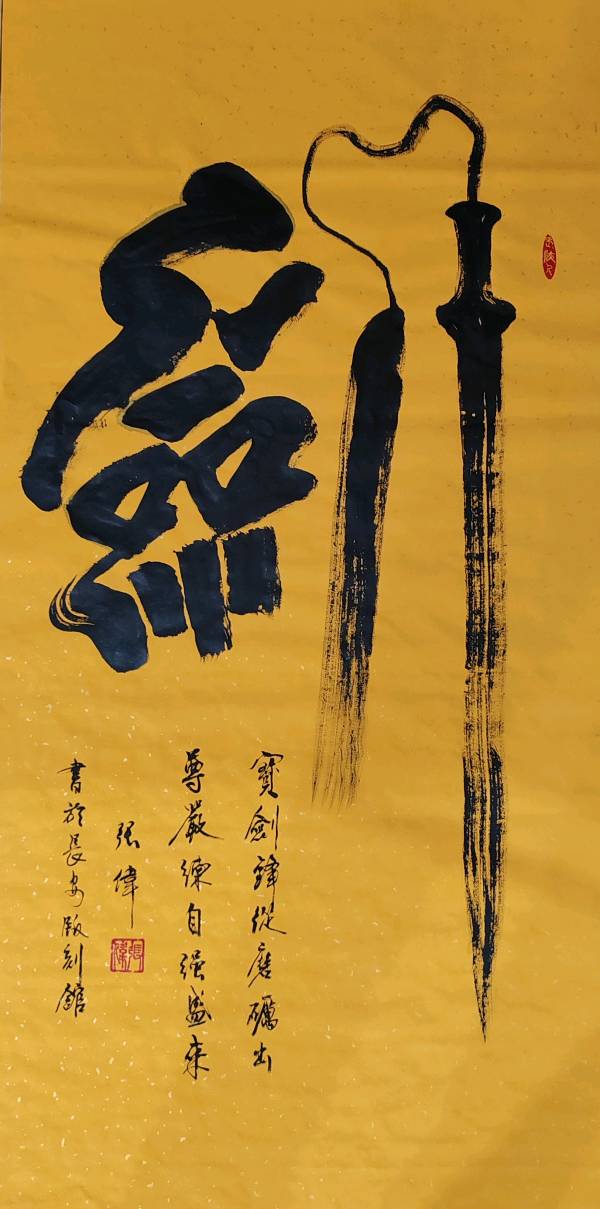 劍
寶劍鋒從磨礪出
尊嚴練自强盛来
張偉
書於長安版刻館